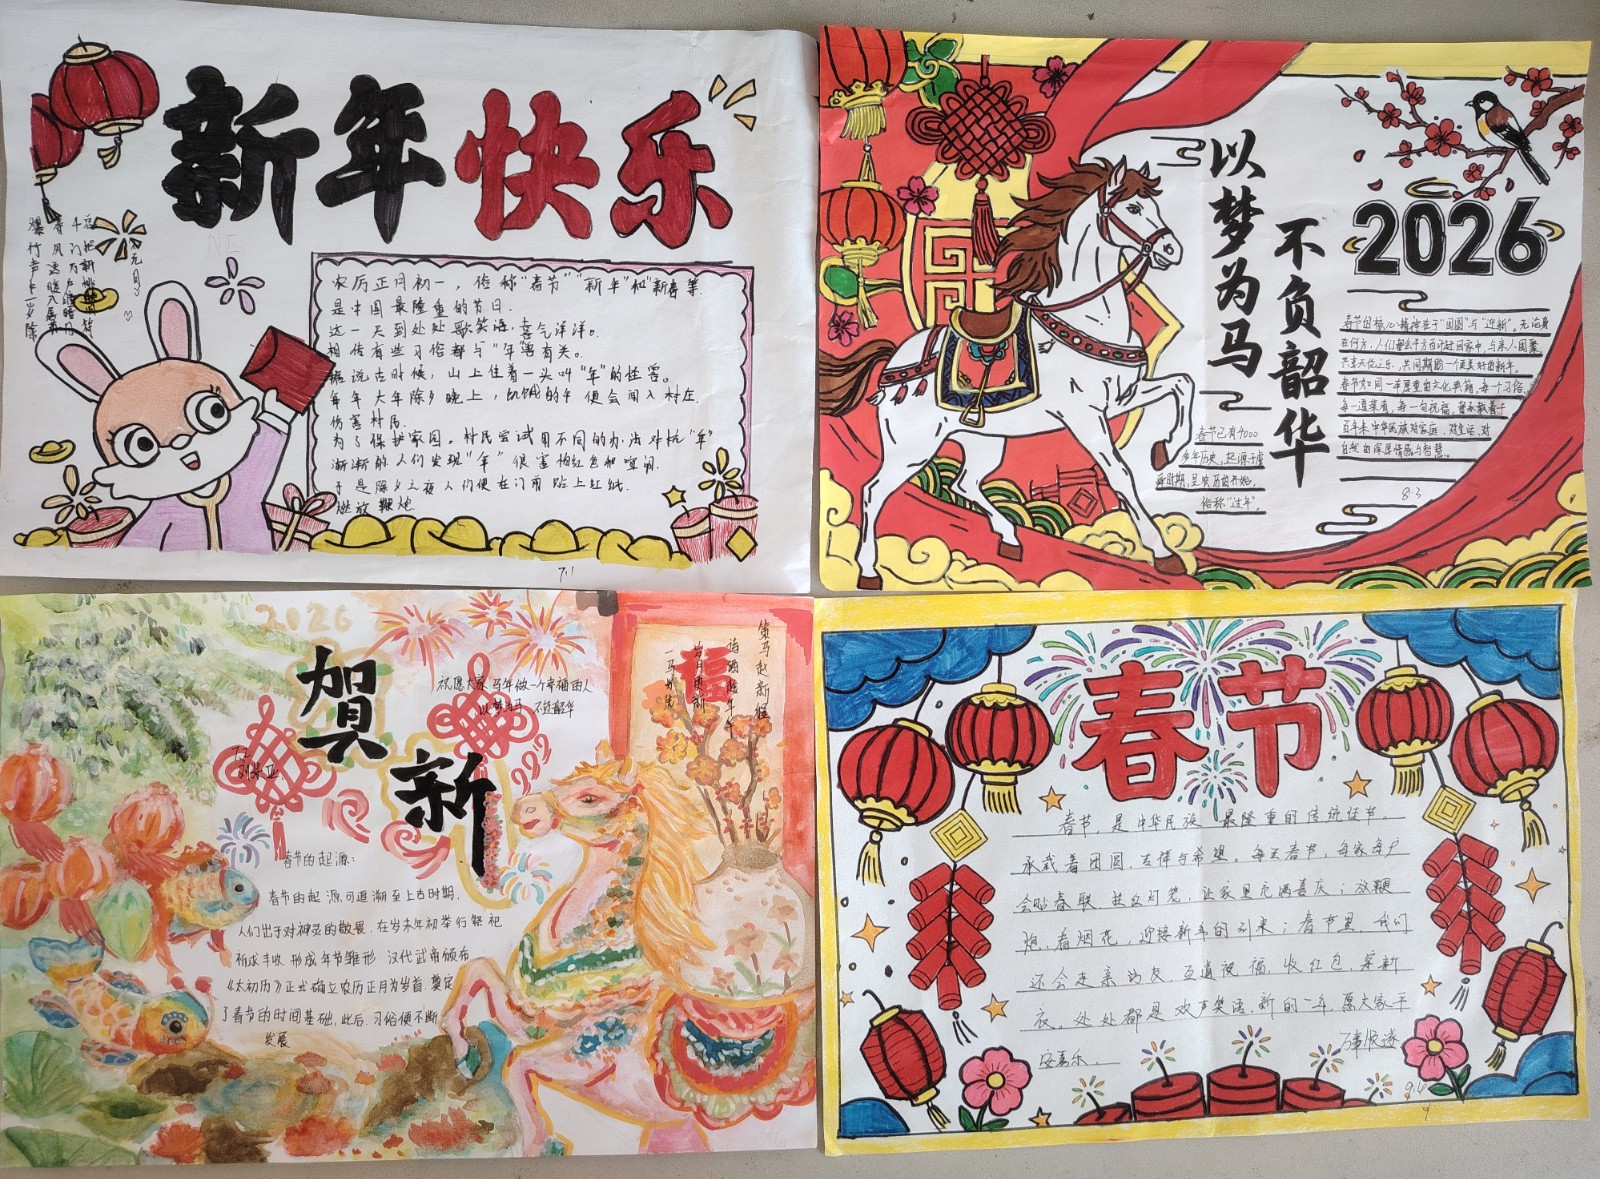 新年快乐
爆竹声中一岁除
春风送暖入屠苏
千门万户曈曈日
农历正月初一，俗称“春节”“新年”和“新春”等.
是中国最隆重的节日.
这一天到处处歌笑语,喜气洋洋。
相传有些习俗都与“年”兽有关。
据说古时候，山上住着一头叫“年”的怪兽。
每年大年除夕晚上，饥饿的年便会闯入村庄.
伤害村民.
为了保护家园。村民尝试用不同的办法对抗“年”
渐渐的人们发现“年”很害怕红色和喧闹.
于是除夕之夜人们便在门前贴上红纸.
燃放鞭炮.
7.1
以梦为马
不负韶华
2026
春节的核心精神在于“团圆”与“迎新”。无论身
在何方，人们都会千方百计赶回家中，与亲人团聚，
共享天伦之乐，共同期盼一个更美好的新年。
春节如同一年厚重的文化典籍，每一个习俗，
每一道菜肴，每一句祝福，都承载着千
百年来中华民族对家庭、对生活、对
自然的深厚情感与智慧。
春节已有4000
多年历史，起源于虞
舜时期,
俗称“过年”。
8.3
2026
贺新
祝愿大家马年做一个幸福的人
以梦为马 不负韶华
策马赴新程
岁月更新
福
7.2
春节的起源:
春节的起源可追溯至上古时期，
人们出于对神灵的敬畏，在岁末年初举行祭祀
祈求丰收 形成年节雏形 汉代武帝颁布
《太初历》正式确立农历正月为岁首，奠定
了春节的时间基础，此后，习俗便不断
发展
春节
春节，是中华民族最隆重的传统佳节。
承载着团圆、吉祥与希望。每至春节，每家每户
会贴春联 挂红灯笼，让家里充满喜庆；放鞭
炮、看烟花，迎接新年的到来；春节里，我们
还会走亲访友，互道祝福，收红包，
夜。处处都是欢声笑语，新的一年，愿大家平
安喜乐，
事顺遂
9.6